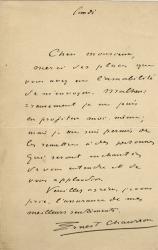 Lundi
Cher monsieur,
merci des places que
vous avez eu l'amabilité
de m'envoyer. Malheu
reusement je ne puis
en profiter moi-même,
mais je me suis permis de
les remettre à des personnes
qui seront enchantées
de vous entendre et de
vous applaudir.
Veuillez agréer, je vous
prie, l'assurance de mes
meilleurs sentiments.
Ernest Chausson